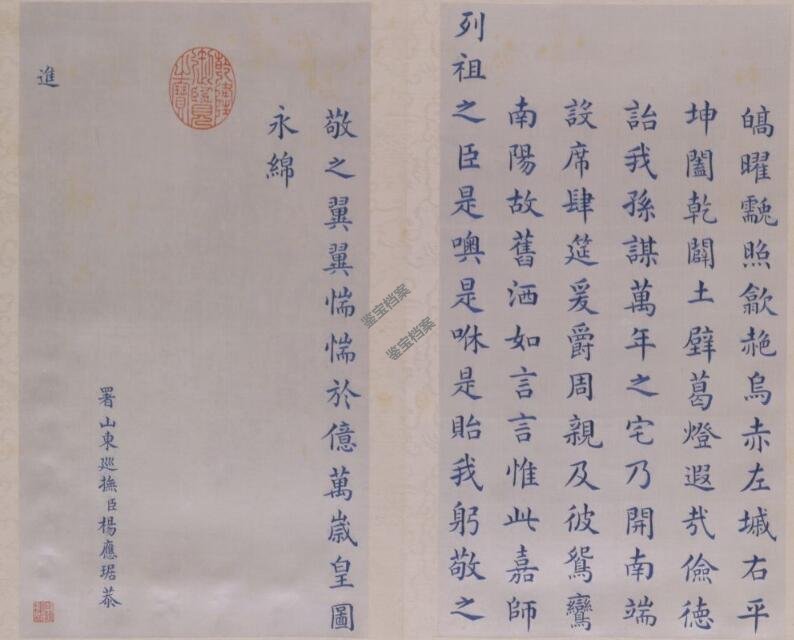 皜曜照歙赩烏赤左墄右平
坤闔乾闢土壁葛燈遐哉儉德
詒我孫謀萬年之宅乃開南端
設席肆筵爰爵周親及彼鴛鸞
南陽故舊洒如言言惟此嘉師
列祖之臣是噢是咻是貽我躬敬之
敬之翼翼惴惴於億萬歲皇圖
永綿
乾隆御覽之寶
署山東廵撫臣楊應琚恭
進
鉴宝档案
鉴宝档案